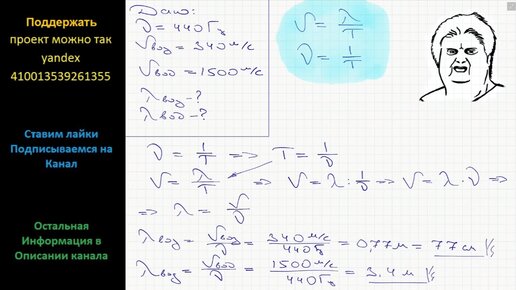 Поддержать
проект можно так
yandex
410013539261355
Ставим лайки
Подписываемся на
Канал
Остальная
Информация в
Описании канала
Дано:
ν = 440 Гц
υвоз = 340 м/с
υвод = 1500 м/с
λвоз - ?
λвод - ?
υ = λ/T
ν = 1/T
ν = 1/T => T = 1/ν
υ = λ/T => υ = λ : 1/ν => υ = λ · ν =>
=> λ = υ/ν
λвоз = υвоз/ν = 340 м/с / 440 Гц = 0,77 м = 77 см
λвод = υвод/ν = 1500 м/с / 440 Гц = 3.4 м